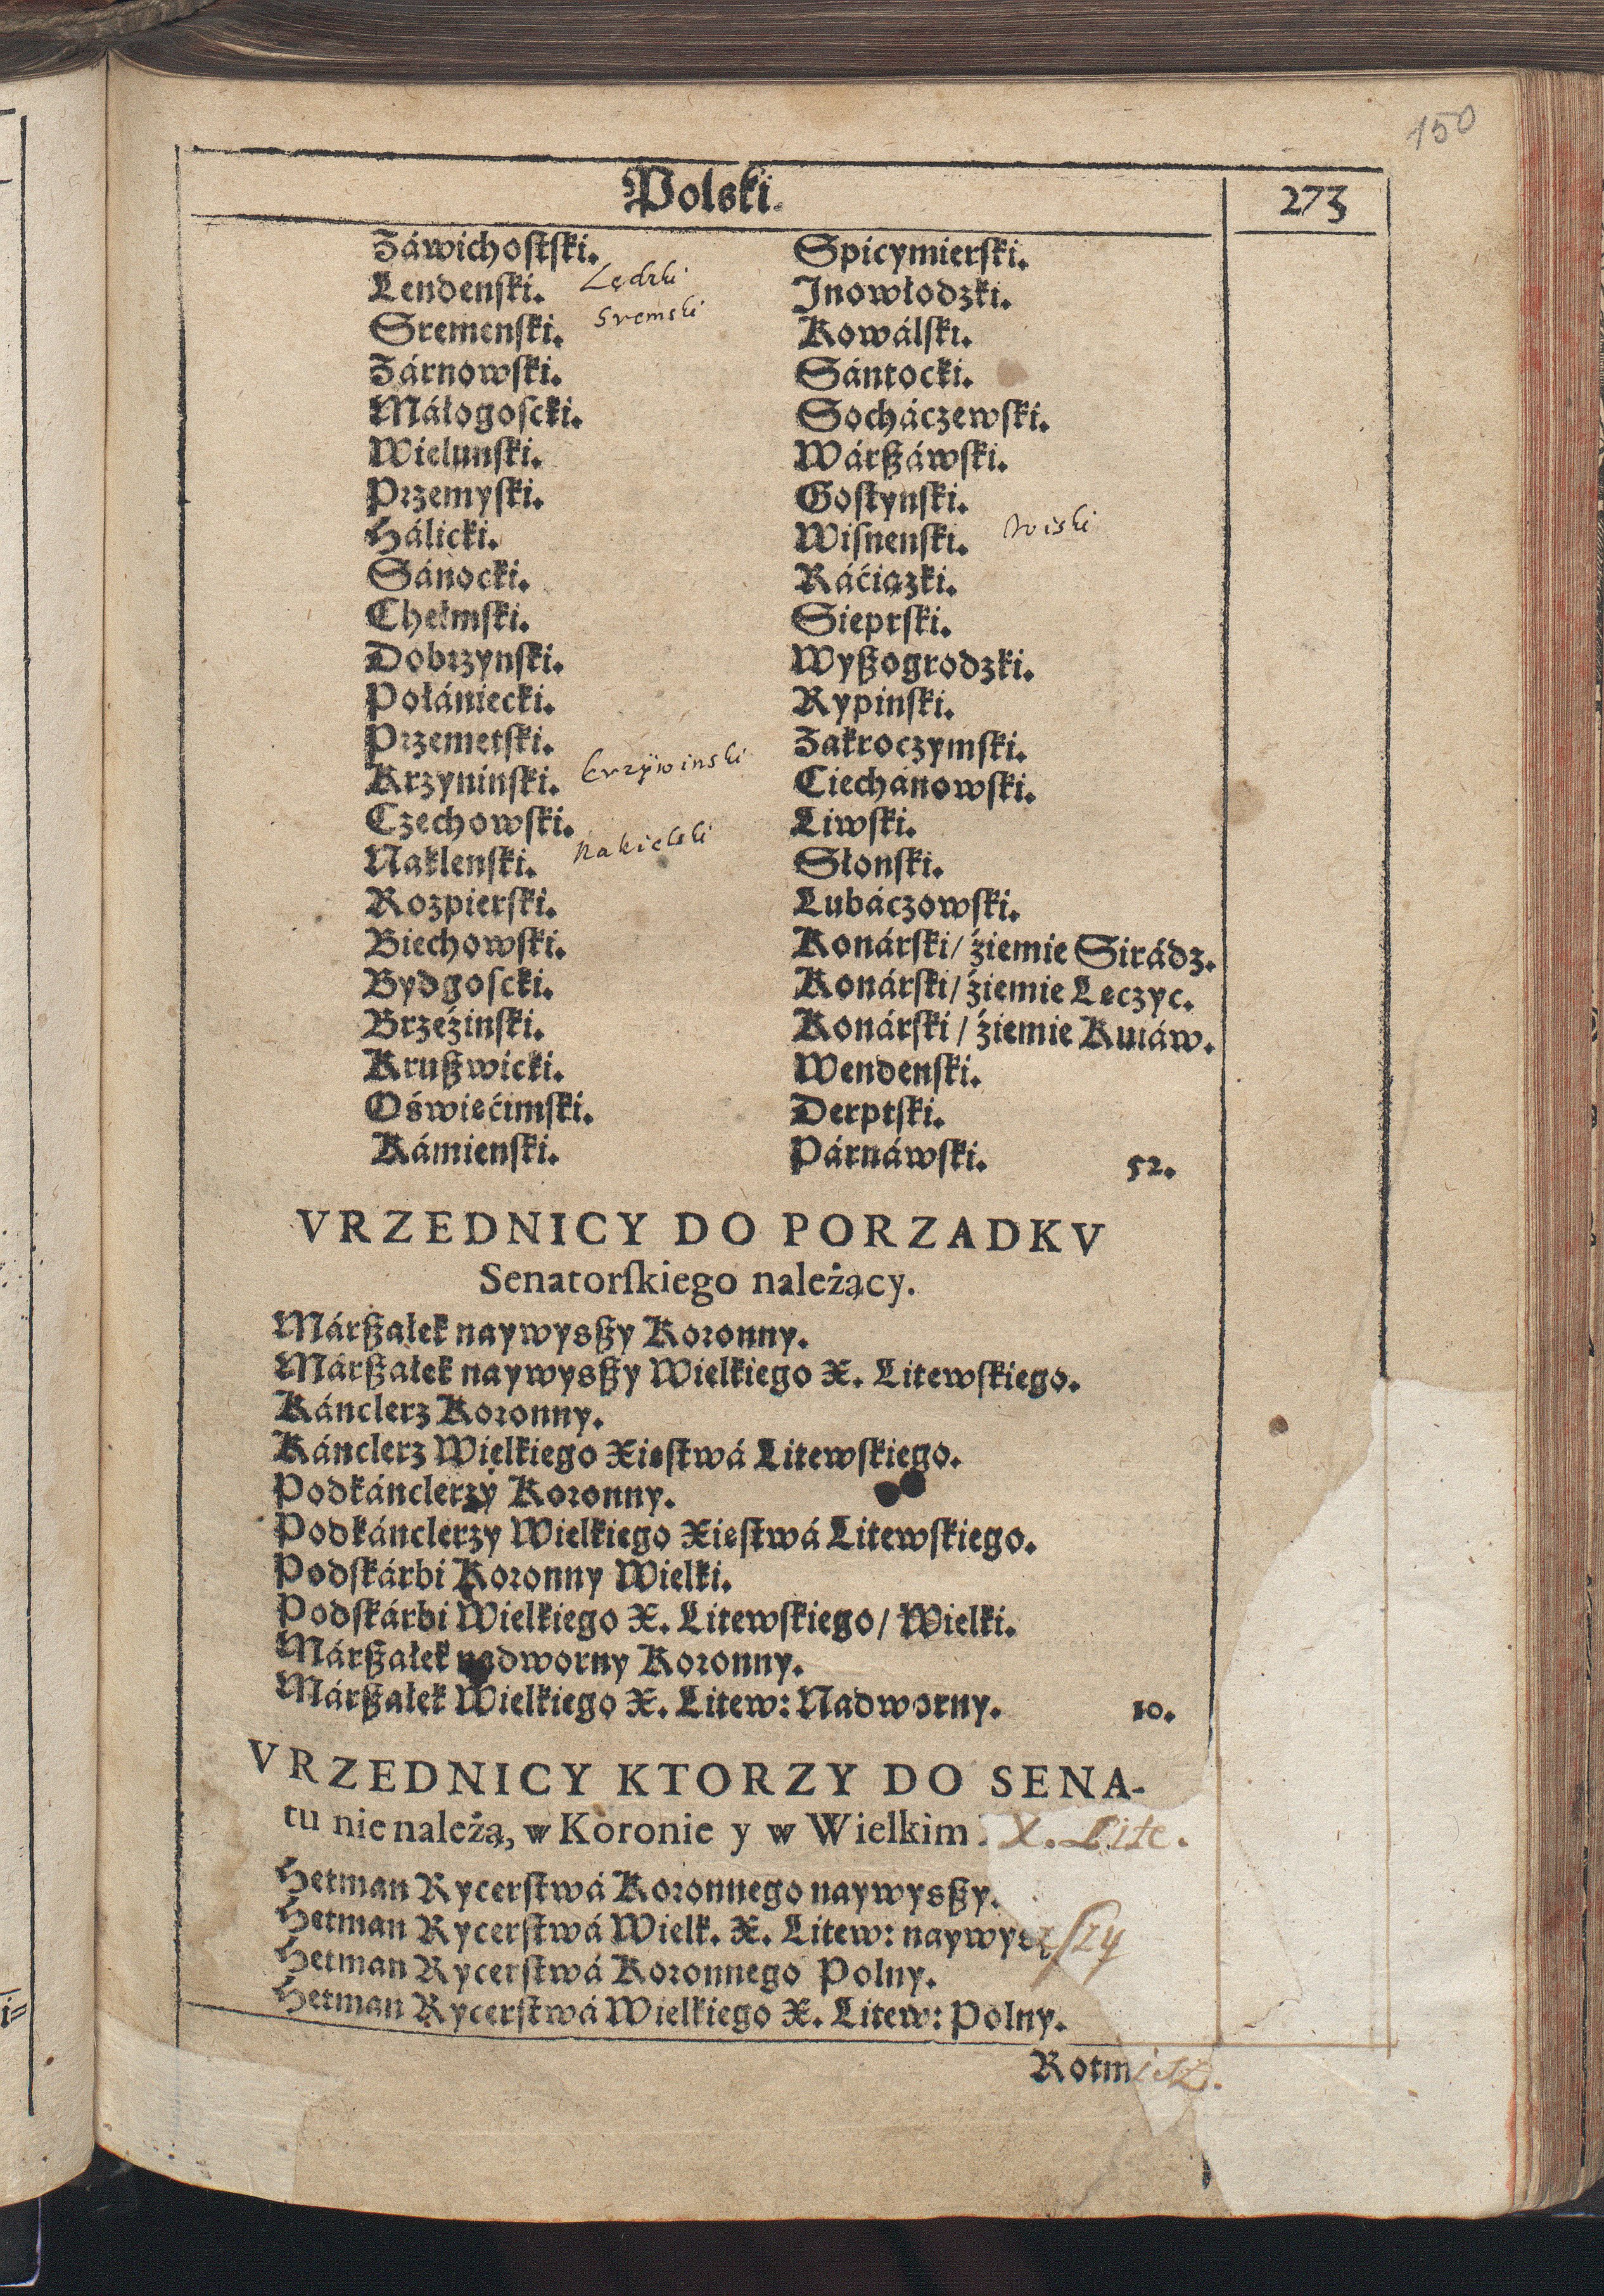 150
Polski.
273
Záwichostski.
Lendenski. Lędzki
Sremenski. Sremski
Zárnowski.
Máłogoscki.
Wielunski.
Przemyski.
Hálicki.
Sánocki.
Chełmski.
Dobrzynski.
Połániecki.
Przemetski.
Krzyninski. krzÿwinski
Czechowski.
Naklenski. Nakielski
Rozpierski.
Biechowski.
Bydgoscki.
Brzeźinski.
Kruszwicki.
Oświećimski.
Kámienski.
Spicymierski.
Jnowłodzki.
Kowálski.
Sántocki.
Socháczewski.
Wárszáwski.
Gostynski.
Wisnenski. Wiski
Ráćiązki.
Sieprski.
Wyszogrodzki.
Rypinski.
Zakroczymski.
Ciechánowski.
Liwski.
Słonski.
Lubáczowski.
Konárski/ źiemie Sirádz.
Konárski/ źiemie Łęczyc.
Konárski/ źiemie Kuiáw.
Wendenski.
Derptski.
Párnáwski. 52.
VRZEDNICY DO PORZADKV
Senatorſkiego należący.
Márszałek naywysszy Koronny.
Márszałek naywysszy Wielkiego X. Litewskiego.
Kánclerz Koronny.
Kánclerz Wielkiego Xięstwá Litewskiego.
Podkánclerzy Koronny.
Podkánclerzy Wielkiego Xięstwá Litewskiego.
Podskárbi Koronny Wielki.
Podskárbi Wielkiego X. Litewskiego/ Wielki.
Márszałek nadworny Koronny.
Márszałek Wielkiego X. Litew: Nadworny. 10.
VRZEDNICY KTORZY DO SENA-
tu nie należą, w Koronie y w Wielkim. X. Lite.
Hetman Rycerstwá Koronnego naywysszy.
Hetman Rycerstwá Wielk. X. Litew: naywysszy
Hetman Rycerstwá Koronnego Polny.
Hetman Rycerstwá Wielkiego X. Litew: Polny.
Rotmistz.